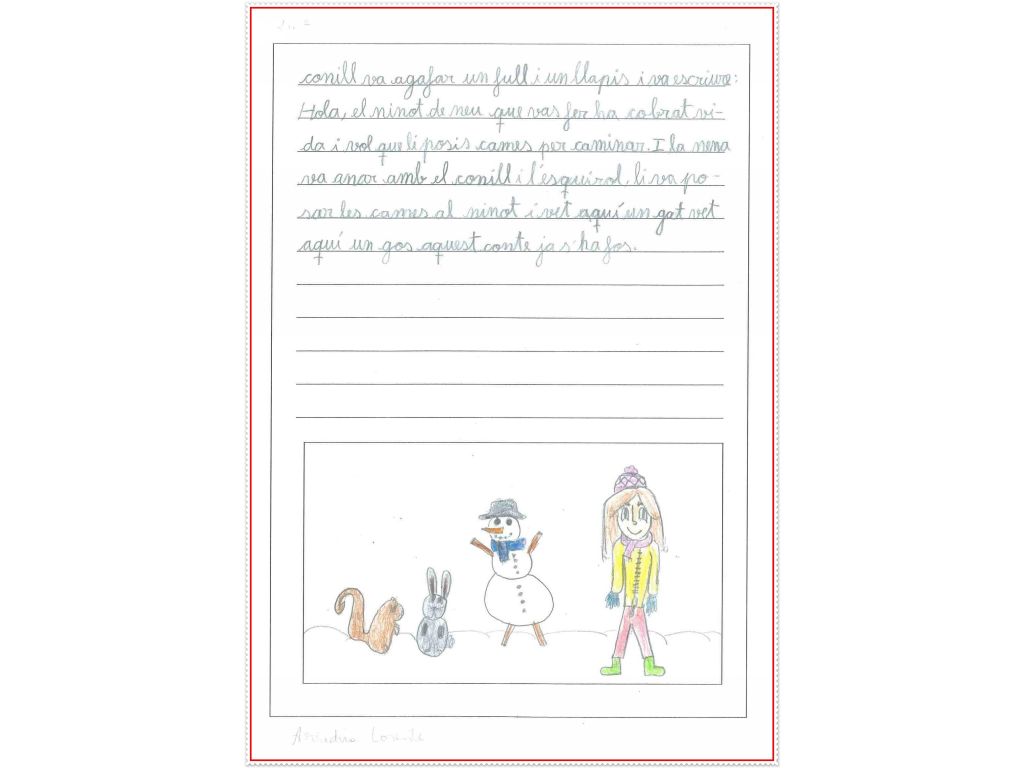 conill va agafar un full i un llapis i va escriure:
Hola, el ninot de neu que vas fer ha cobrat vi-
da i vol que li posis cames per caminar. I la nena
va anar amb el conill i l'esquirol, li va po-
sar les cames al ninot i vet aquí un gat vet
aquí un gos aquest conte ja s'ha fos.